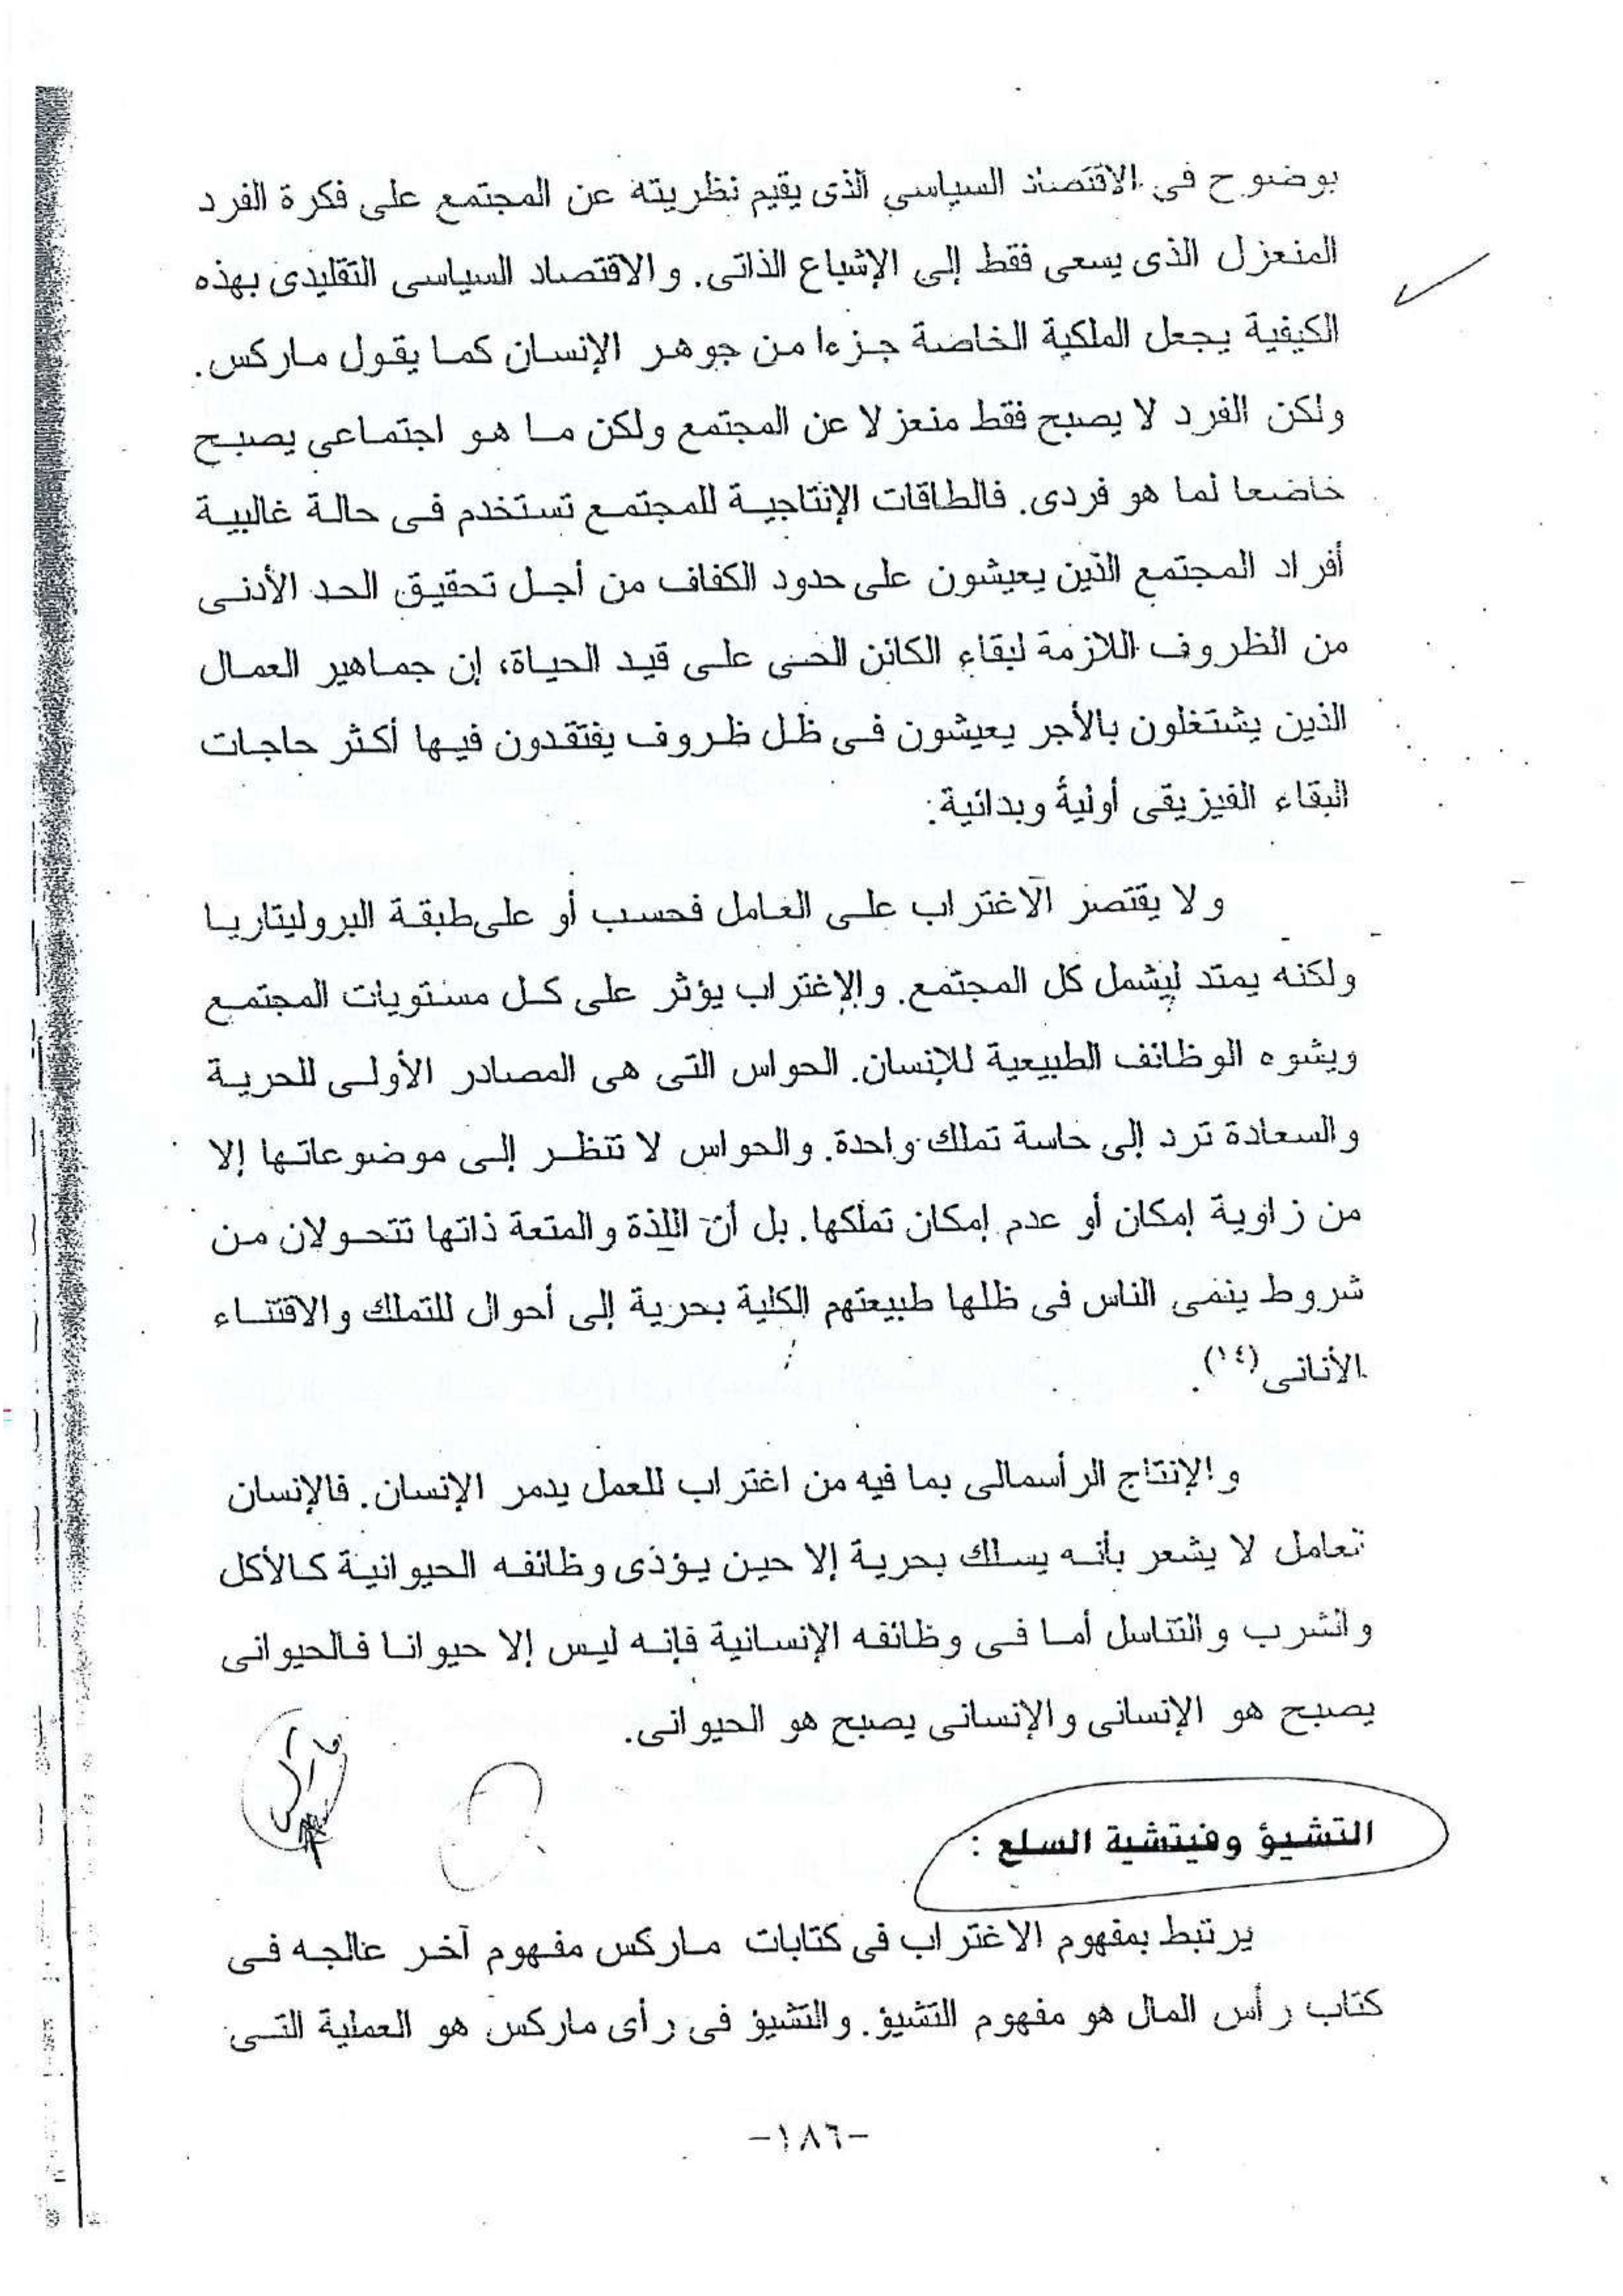 بوضوح في الاقتصاد السياسي الذى يقيم نظريته عن المجتمع على فكرة الفرد
المنعزل الذى يسعى فقط إلى الإشباع الذاتى. والاقتصاد السياسى التقليدى بهذه
الكيفية يجعل الملكية الخاصة جزءا من جوهر الإنسان كما يقول ماركس.
ولكن الفرد لا يصبح فقط منعزلا عن المجتمع ولكن ما هو اجتماعى يصبح
خاضعا لما هو فردى. فالطاقات الإنتاجية للمجتمع تستخدم فى حالة غالبية
أفراد المجتمع الذين يعيشون على حدود الكفاف من أجل تحقيق الحد الأدنى
من الظروف اللازمة لبقاء الكائن الحى على قيد الحياة، إن جماهير العمال
الذين يشتغلون بالأجر يعيشون فى ظل ظروف يفتقدون فيها أكثر حاجات
البقاء الفيزيقى أولية وبدائية.
ولا يقتصر الاغتراب على العامل فحسب أو على طبقة البروليتاريا
ولكنه يمتد ليشمل كل المجتمع. والإغتراب يؤثر على كل مستويات المجتمع
ويشوه الوظائف الطبيعية للإنسان. الحواس التى هى المصادر الأولى للحرية
والسعادة ترد إلى حاسة تملك واحدة. والحواس لا تنظر إلى موضوعاتها إلا
من زاوية إمكان أو عدم إمكان تملكها. بل أن اللذة والمتعة ذاتها تتحولان من
شروط ينمى الناس فى ظلها طبيعتهم الكلية بحرية إلى أحوال للتملك والاقتناء
الأنانى (١٤).
والإنتاج الرأسمالى بما فيه من اغتراب للعمل يدمر الإنسان. فالإنسان
تعامل لا يشعر بأنه يسلك بحرية إلا حين يؤدى وظائفه الحيوانية كالأكل
والشرب والتناسل أما فى وظائفه الإنسانية فإنه ليس إلا حيوانا فالحيوانى
يصبح هو الإنسانى والإنسانى يصبح هو الحيوانى.
التشيؤ وفيتشية السلع :
يرتبط بمفهوم الاغتراب فى كتابات ماركس مفهوم آخر عالجه فى
كتاب رأس المال هو مفهوم التشيؤ. والتشيؤ فى رأى ماركس هو العملية التى
-١٨٦-